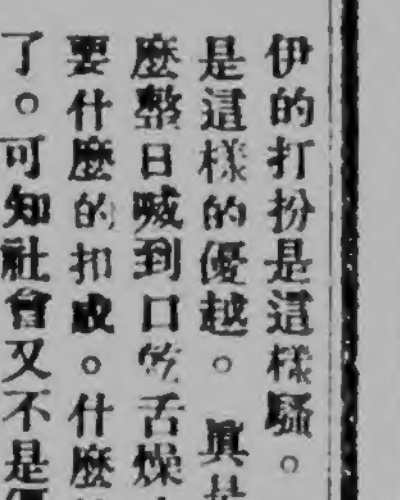 伊的打扮是這樣騷。
是這樣的優越。真
麼整日喊到口乾舌燥
要什麼的扣成。什麼
了。可知社會又不是